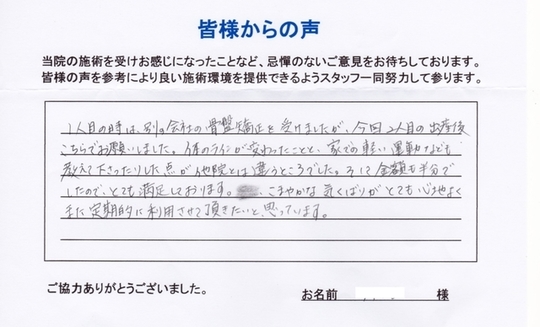 皆様からの声
当院の施術を受けお感じになったことなど、忌憚のないご意見をお待ちしております。
皆様の声を参考により良い施術環境を提供できるようスタッフ一同努力して参ります。
1人目の時は、別の会社の骨盤矯正を受けましたが、今回2人目の出産後
こちらでお願いしました。体のラインが変わったことと、家での軽い運動なども
教えて下さったりした点が他院とは違うところでした。そして金額も半分で
したので、とても満足しております。こまやかな気くばりがとても心地よく
また定期的に利用させて頂きたいと思っています。
ご協力ありがとうございました。
お名前 様